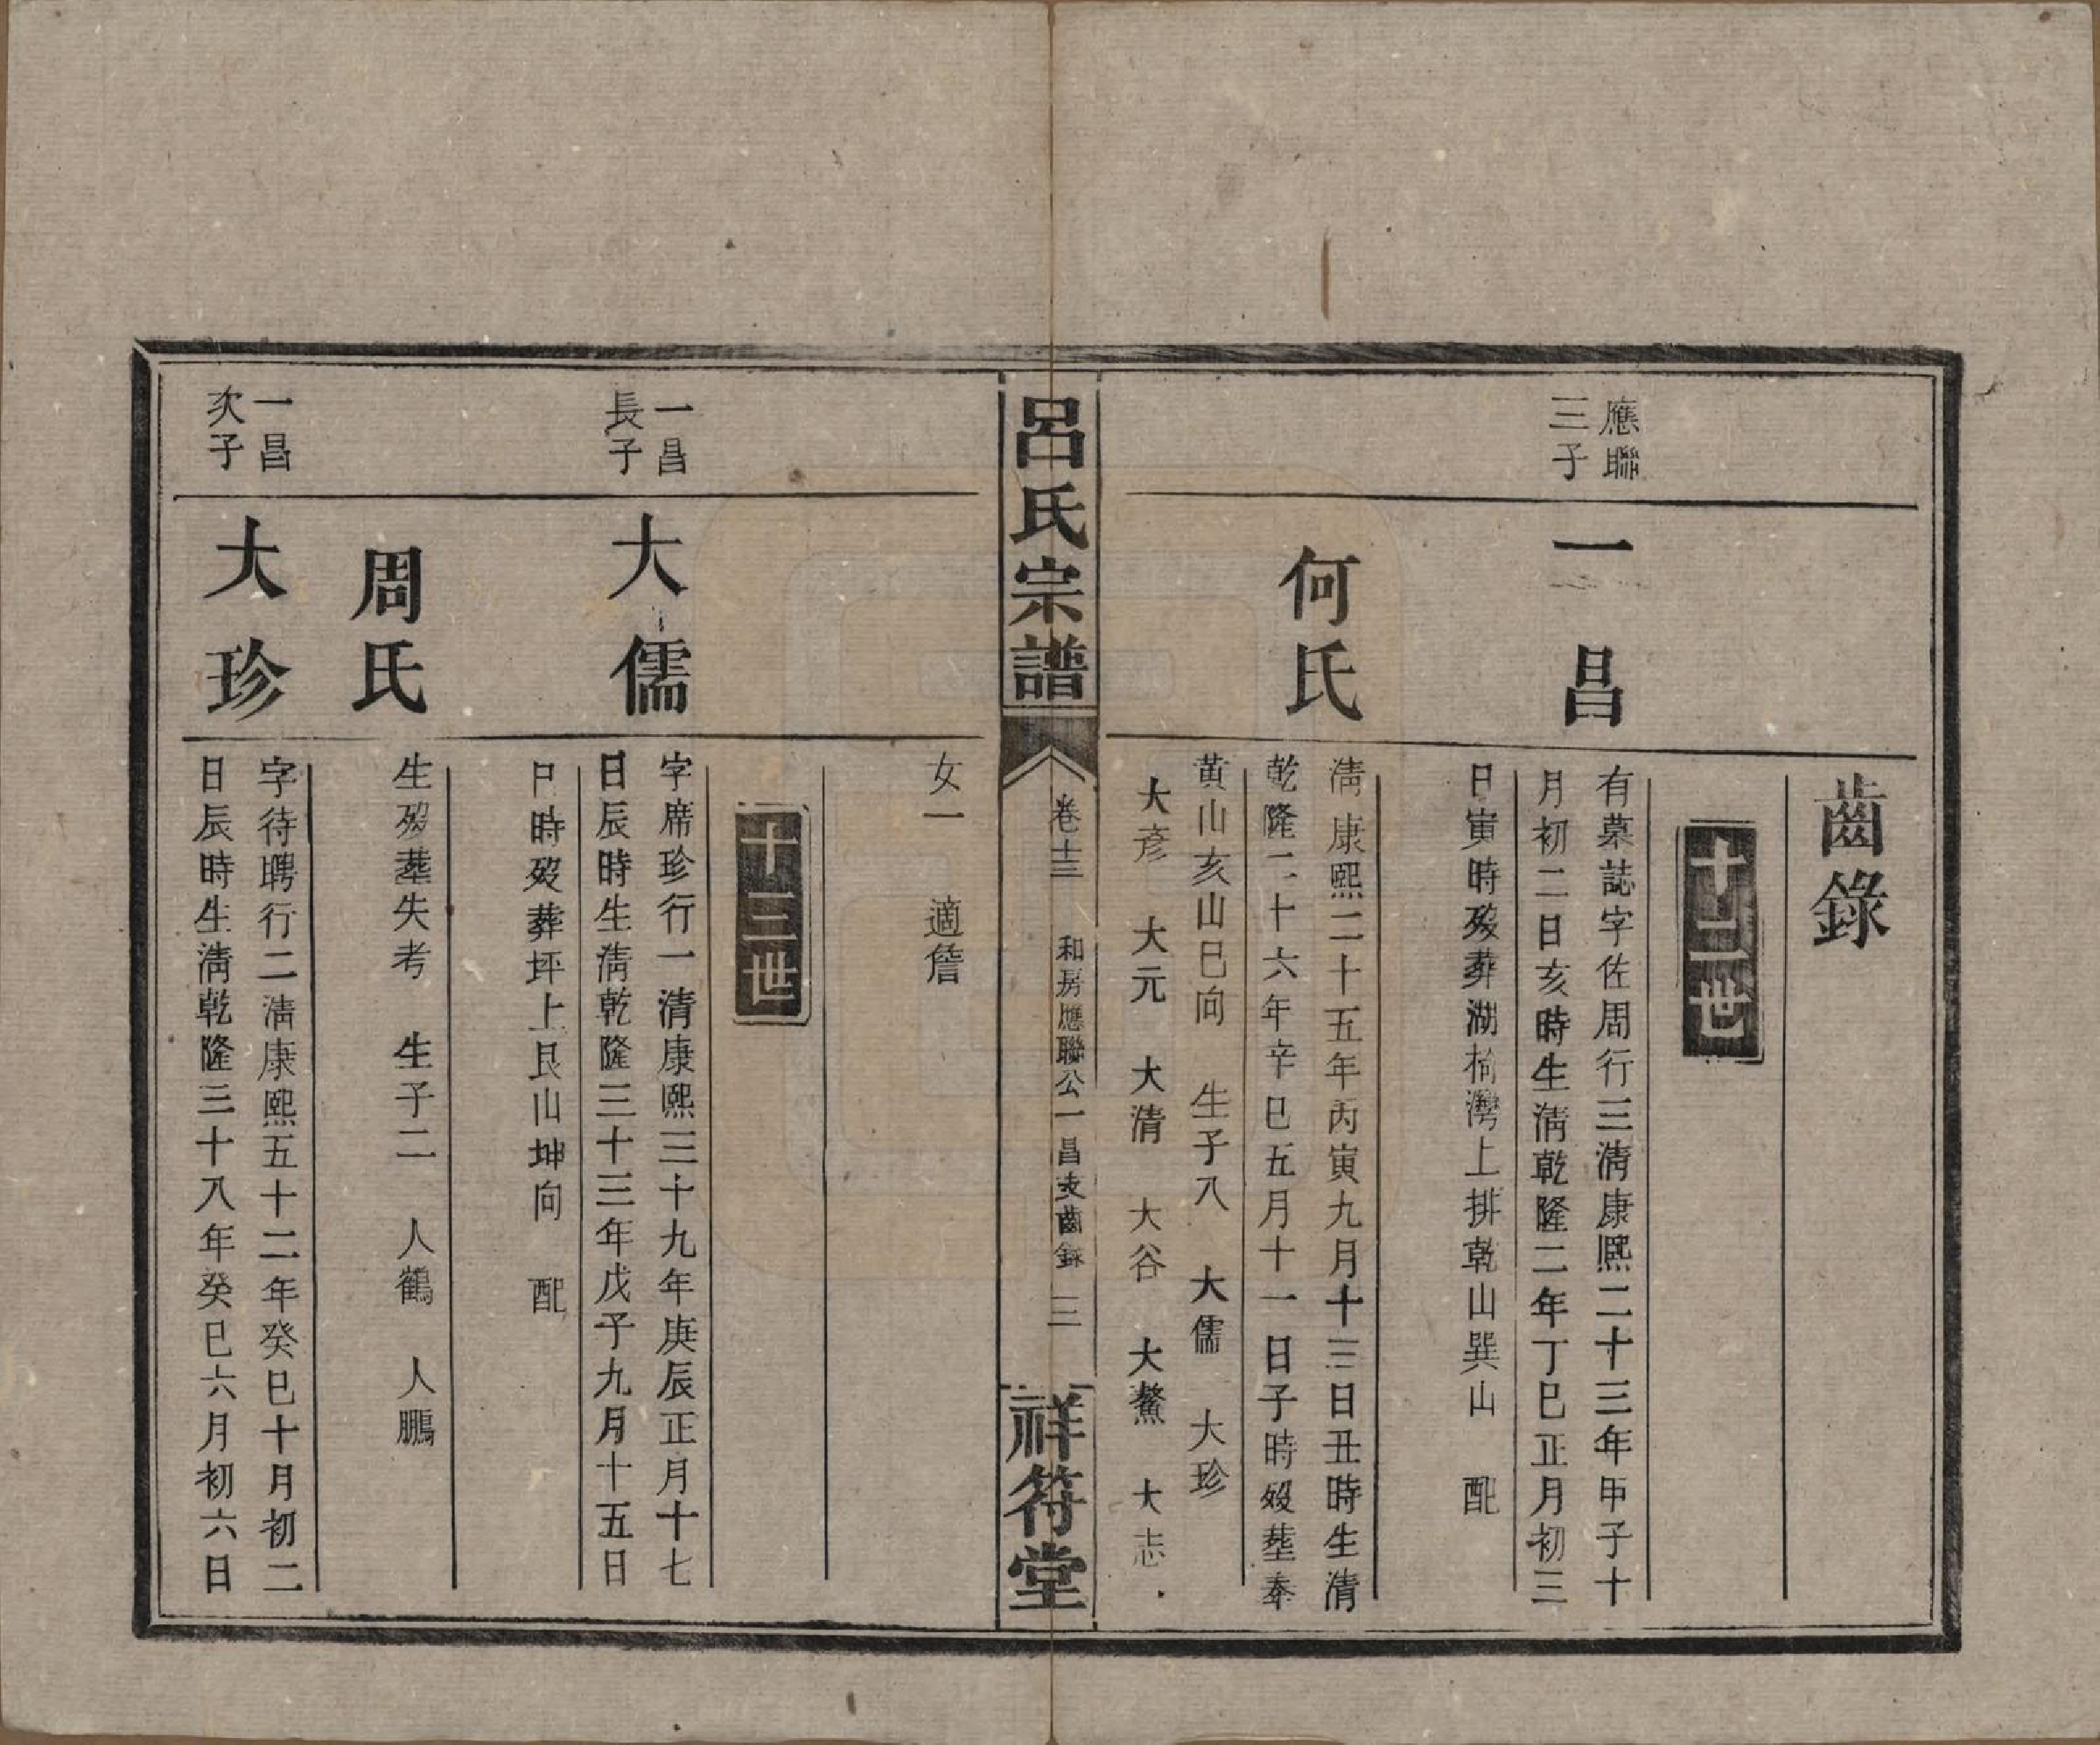 齒錄
十二世
應聯
三子
一昌
有墓誌字佐周行三清康熙二十三年甲子十
月初二日亥時生清乾隆二年丁巳正月初三
日寅時歿葬湖楠灣上排乾山巽山 配
何氏
清康熙二十五年丙寅九月十三日丑時生清
乾隆二十六年辛巳五月十一日子時歿塟奉
黃山亥山巳向 生子八 大儒 大珍
大彥 大元 大清 大谷 大鰲 大志
呂氏宗譜
卷十三 和房應聯公一昌支齒錄 三
祥符堂
女一 適詹
十三世
一昌
長子
大儒
字席珍行一清康熙三十九年庚辰正月十七
日辰時生清乾隆三十三年戊子九月十五日
巳時歿葬坪上艮山坤向 配
周氏
生歿塟失考 生子二 人鶴 人鵬
一昌
次子
大珍
字待聘行二清康熙五十二年癸巳十月初二
日辰時生清乾隆三十八年癸巳六月初六日